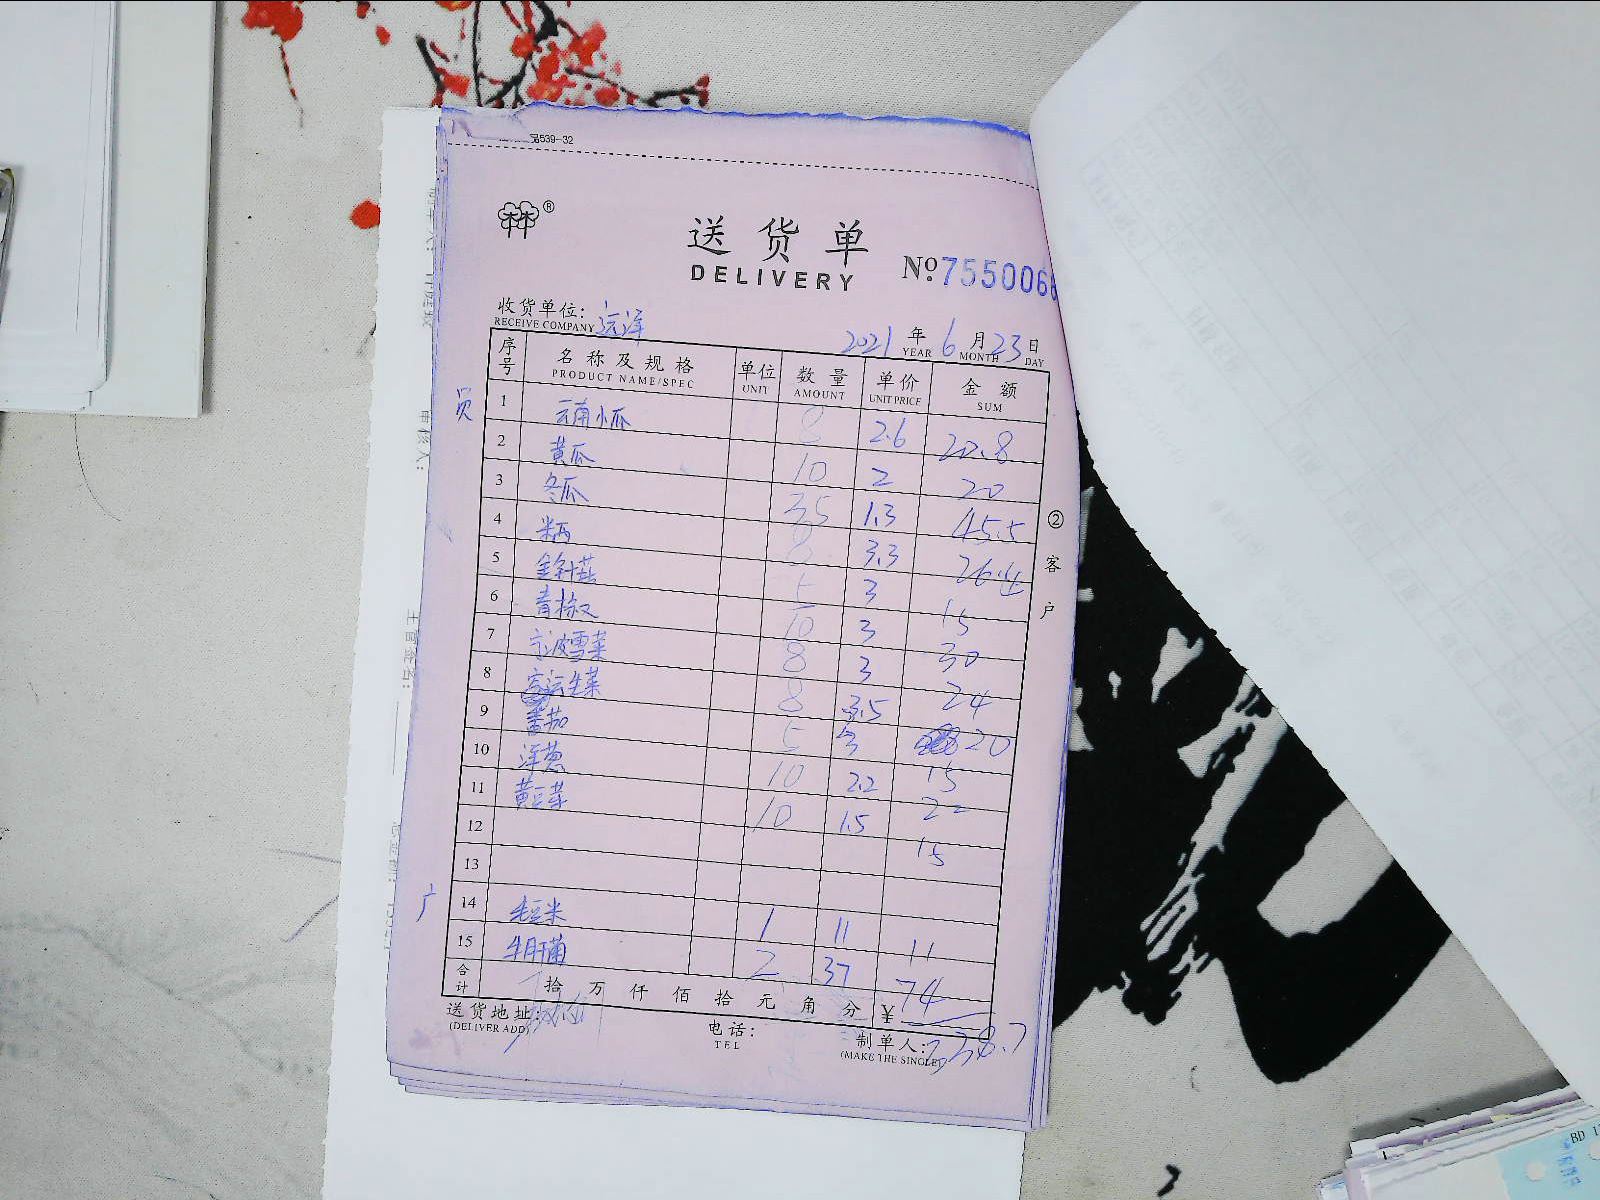 品539-32
林®
送货单
DELIVERY
No.7550066
收货单位: 远洋
RECEIVE COMPANY
2021 年 6 月 23 日
YEAR MONTH DAY
序号 名称及规格 单位 数量 单价 金额
PRODUCT NAME/SPEC UNIT AMOUNT UNIT PRICE SUM
1 云南小瓜 8 2.6 20.8
2 黄瓜 10 2 20
3 冬瓜 35 1.3 45.5
4 8 3.3 26.4
5 金针菇 5 3 15
6 青椒 10 3 30
7 宁波雪菜 8 3 24
8 生菜 8 3.5 20
9 番茄 5 3 15
10 洋葱 10 2.2 22
11 黄豆芽 10 1.5 15
12
13
14 毛豆米 1 11 11
15 牛肝菌 2 37 74
合计 拾 万 仟 佰 拾 元 角 分 ¥
338.7
送货地址:
(DELIVER ADD)
电话:
TEL
制单人:
(MAKE THE SINGLE)
②客户
审核人:
BD